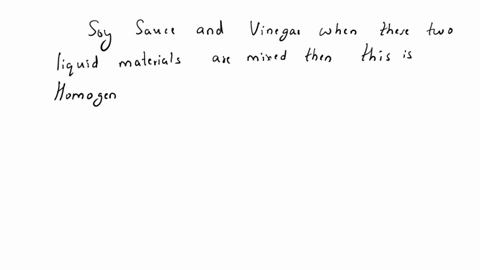 Soy Sauce and Vinegar when these two
liquid materials are mixed then this is
Homogen